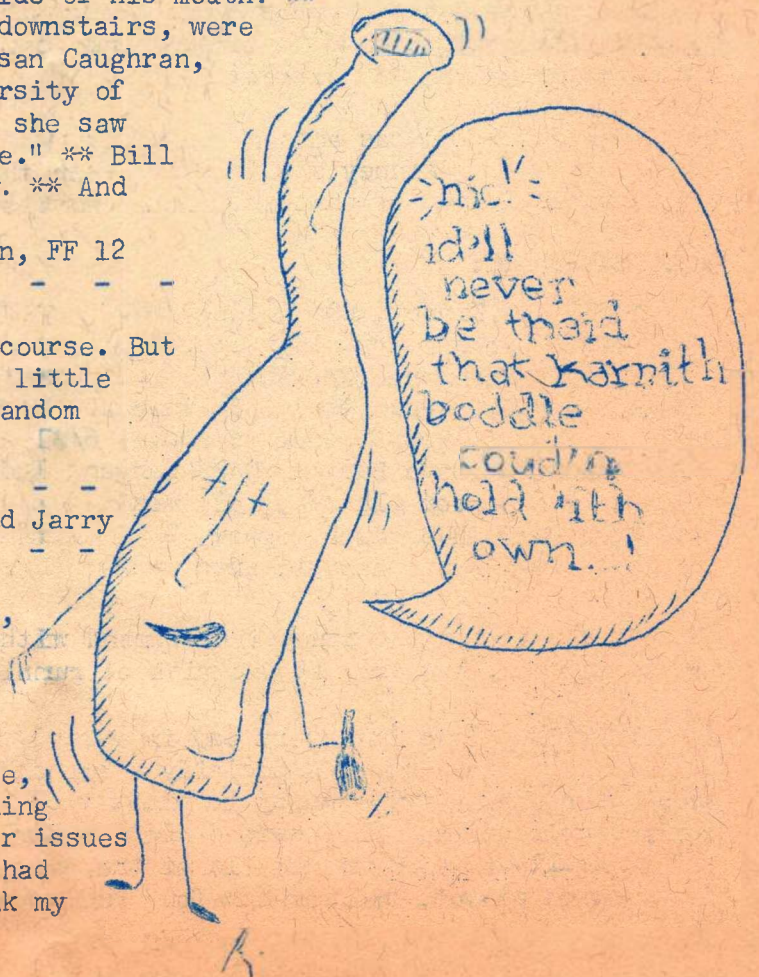 ide of his mouth. **
downstairs, were
san Caughran,
rsity of
she saw
e." ** Bill
. ** And
n, FF 12
- - -
course. But
little
andom
- -
d Jarry
- -
,
e,
ing
r issues
had
k my
hic!
id'll
never
be thaid
that Karnith
boddle
coud'n
hold 'ith
own...!